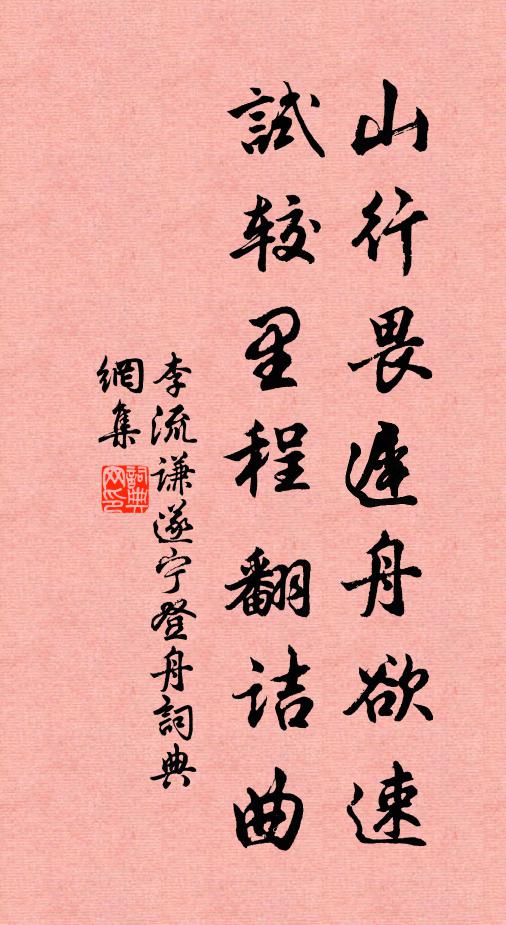 山行畏遲舟欲速
試较里程翻詰曲
李流谦遂宁登舟詞典
網集
詞典网印